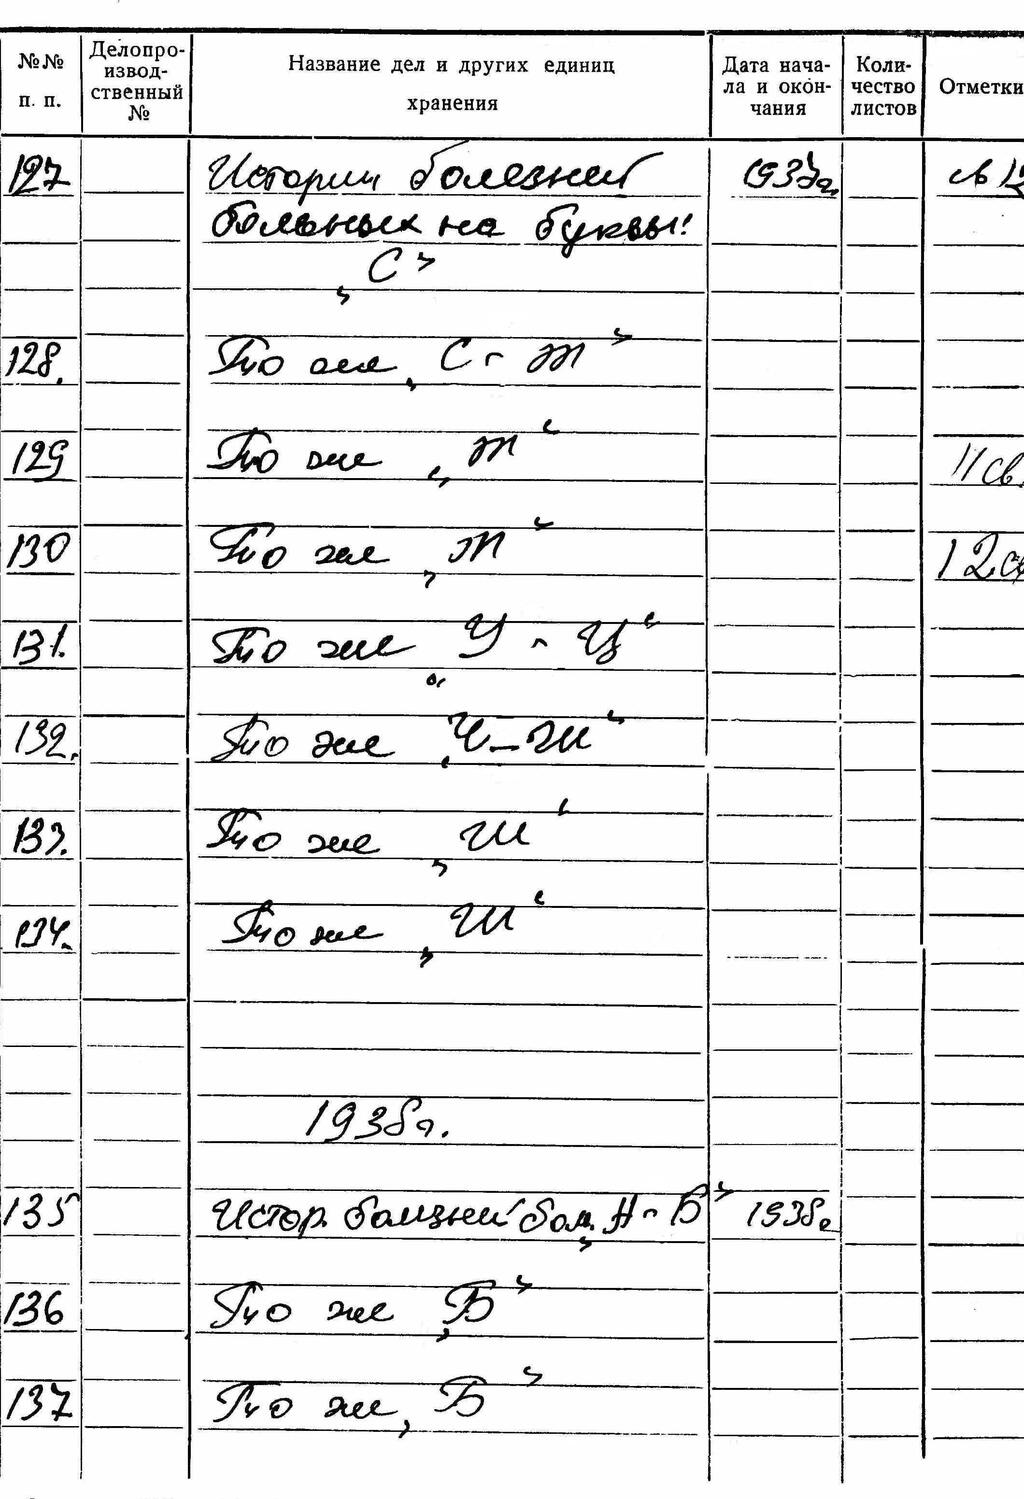 №№ п. п. Делопроизводственный № Название дел и других единиц хранения Дата начала и окончания Количество листов Отметки
127 Истории болезней 1937г.
больных на буквы:
„С"
128. То же „С - Т"
129 То же „Т" 11 св.
130 То же „Т" 12 св
131. То же „У - Ц"
132. То же „Ч - Ш"
133. То же „Ш"
134. То же „Ш"
1938г.
135 Истор. болезней бол. „А - Б" 1938г
136 То же „Б"
137 То же „Б"